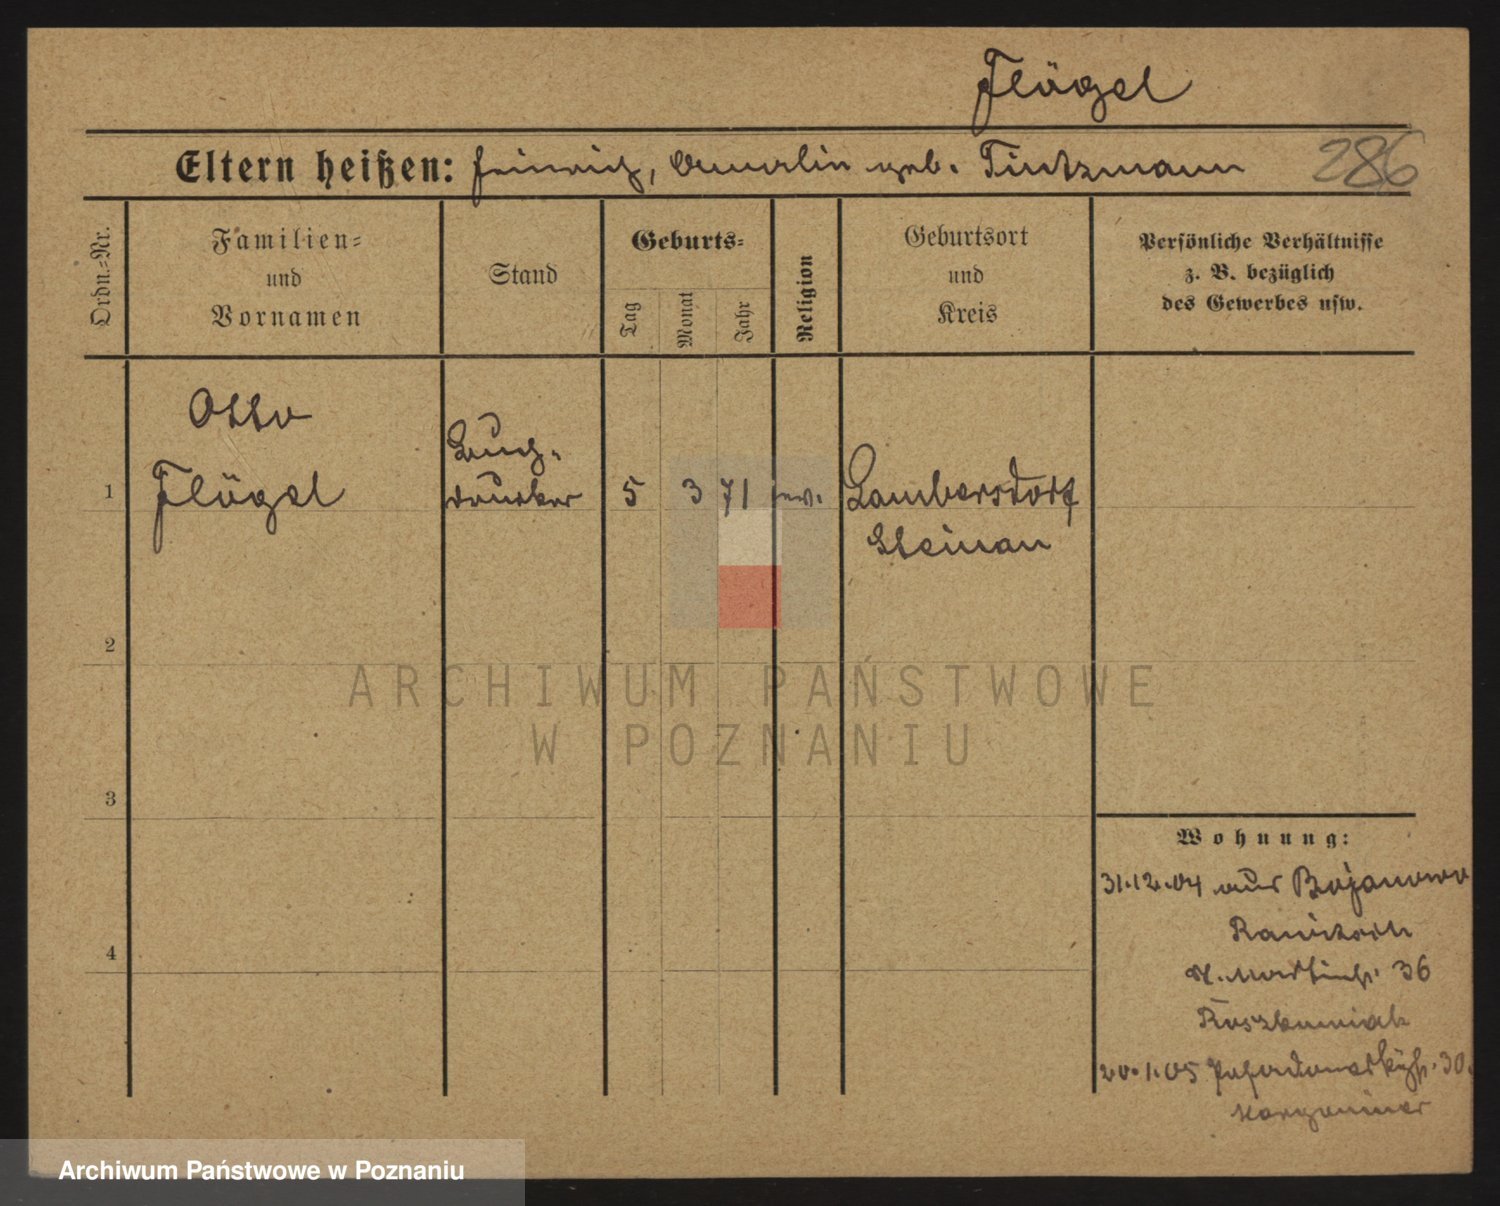 Flügel
Eltern heißen: Heinrich, geb. Tintzmann 286
Ordn.=Nr.
Familien=
und
Vornamen
Stand
Geburts=
Tag
Monat
Jahr
Religion
Geburtsort
und
Kreis
Persönliche Verhältnisse
z. B. bezüglich
des Gewerbes usw.
Otto
Flügel
Buch-
drucker
1
5 3 71 ev.
Lambersdorf
Steinau
2
3
4
ARCHIWUM PAŃSTWOWE
W POZNANIU
Wohnung:
31.12.04 aus Bojanowo
Rawitsch
St. Martinstr. 36
20.1.05 30.
Archiwum Państwowe w Poznaniu